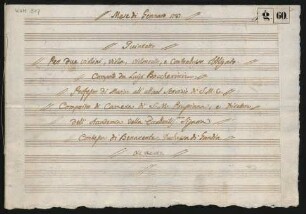 Mese di Gennaro 1787.
2. 60.
Quintetti
Per due violini, viola, violoncello, e Contrabasso obligato
Composti da Luigi Boccherini
Professor di Musica all' Attual Servizio di S. M. C.
Compositor di Camera di S. M. Prussiana, e Direttor
dell' Accademie della Eccellent.ma Signora
Contessa di Benavente, Duchessa di Gandia